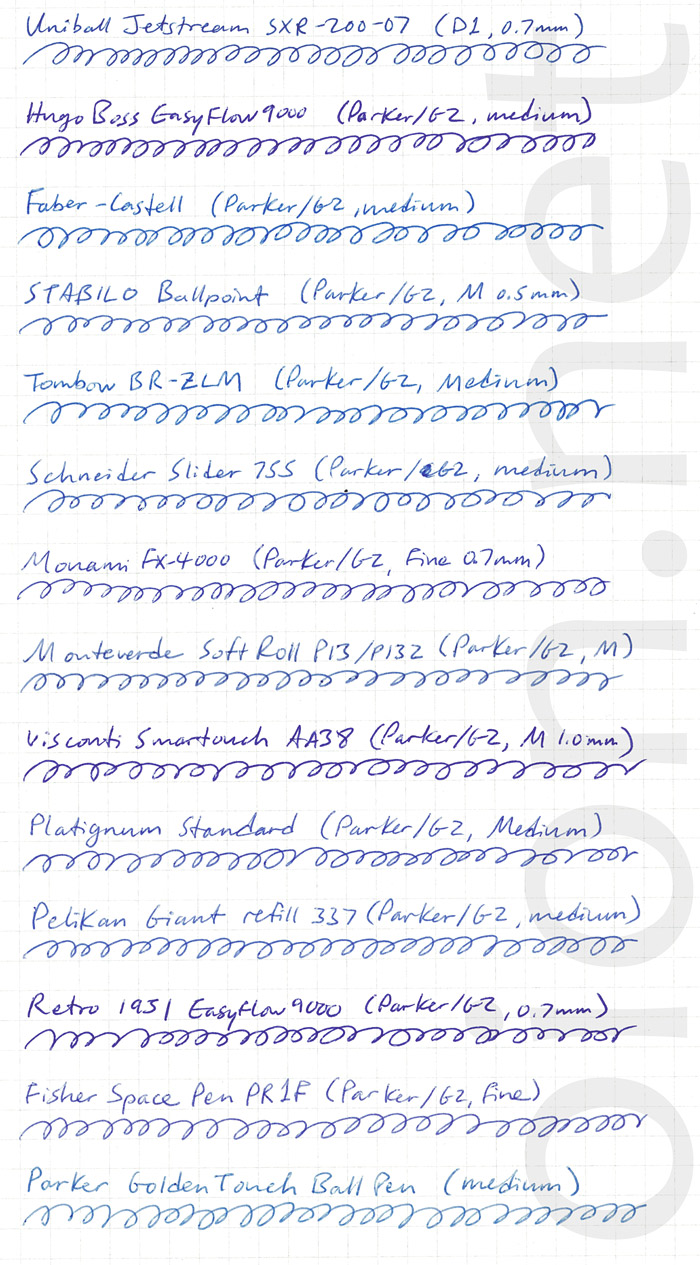 Uniball Jetstream SXR-200-07 (D1, 0.7mm)
Hugo Boss EasyFlow9000 (Parker/G2, medium)
Faber-Castell (Parker/G2, medium)
STABILO Ballpoint (Parker/G2, M 0.5mm)
Tombow BR-ZLM (Parker/G2, Medium)
Schneider Slider 755 (Parker/G2, medium)
Monami FX-4000 (Parker/G2, Fine 0.7mm)
Monteverde Soft Roll P13/P132 (Parker/G2, M)
Visconti Smartouch AA38 (Parker/G2, M 1.0mm)
Platignum Standard (Parker/G2, Medium)
Pelikan Giant refill 337 (Parker/G2, medium)
Retro 1951 EasyFlow9000 (Parker/G2, 0.7mm)
Fisher Space Pen PR1F (Parker/G2, Fine)
Parker GoldenTouch Ball Pen (medium)